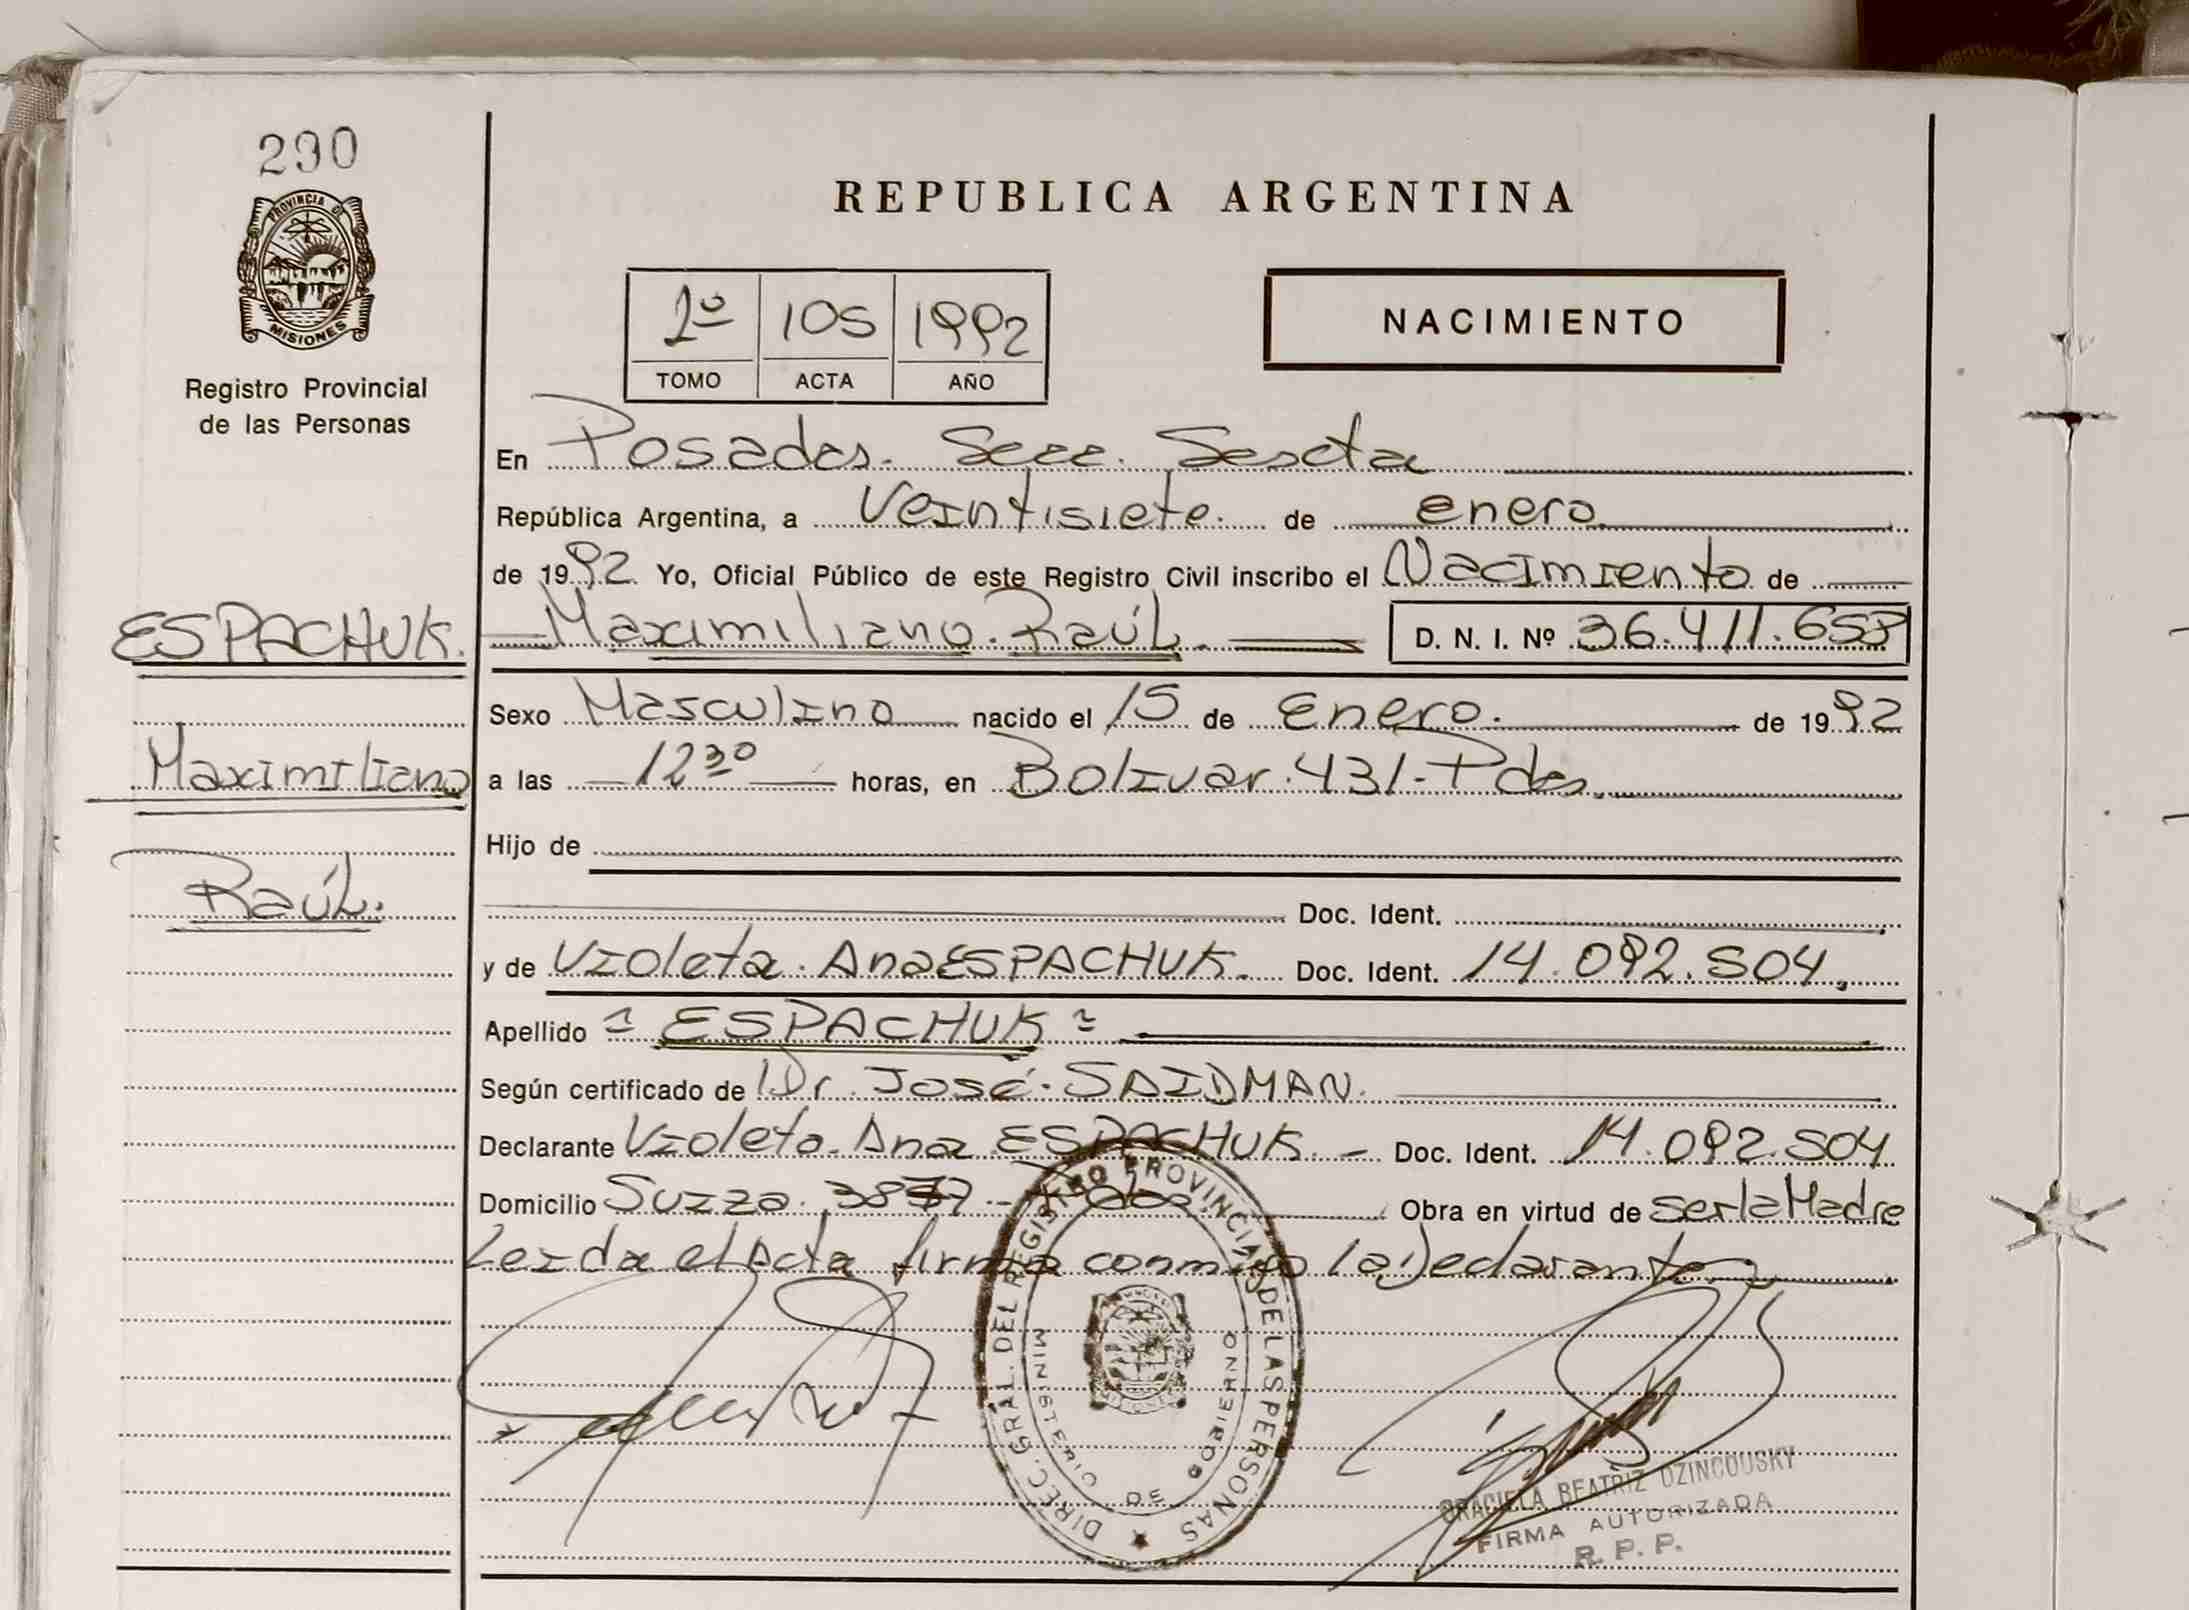 290
PROVINCIA DE
MISIONES
Registro Provincial
de las Personas
ESPACHUK.
Maximiliano
Raúl.
REPUBLICA ARGENTINA
1º 105 1992
TOMO ACTA AÑO
NACIMIENTO
En Posadas. Secc. Sexta
República Argentina, a Veintisiete. de enero
de 1992. Yo, Oficial Público de este Registro Civil inscribo el Nacimiento de
Maximiliano. Raúl. D. N. I. Nº 36.411.658
Sexo Masculino nacido el 15 de Enero. de 1992
a las 12 30 horas, en Bolivar. 431. Pdas.
Hijo de
Doc. Ident.
y de Violeta. Ana ESPACHUK. Doc. Ident. 14.092.504.
Apellido = ESPACHUK =
Según certificado de Dr. José. SAIDMAN.
Declarante Violeta. Ana ESPACHUK. - Doc. Ident. 14.092.504
Domicilio Obra en virtud de ser la Madre
Leida el Acta firma conmigo la Declarante
DIREC. GRAL. DEL REGISTRO PROVINCIAL DE LAS PERSONAS
MINISTERIO DE GOBIERNO
MISIONES
GRACIELA BEATRIZ DZINCOUSKY
FIRMA AUTORIZADA
R. P. P.